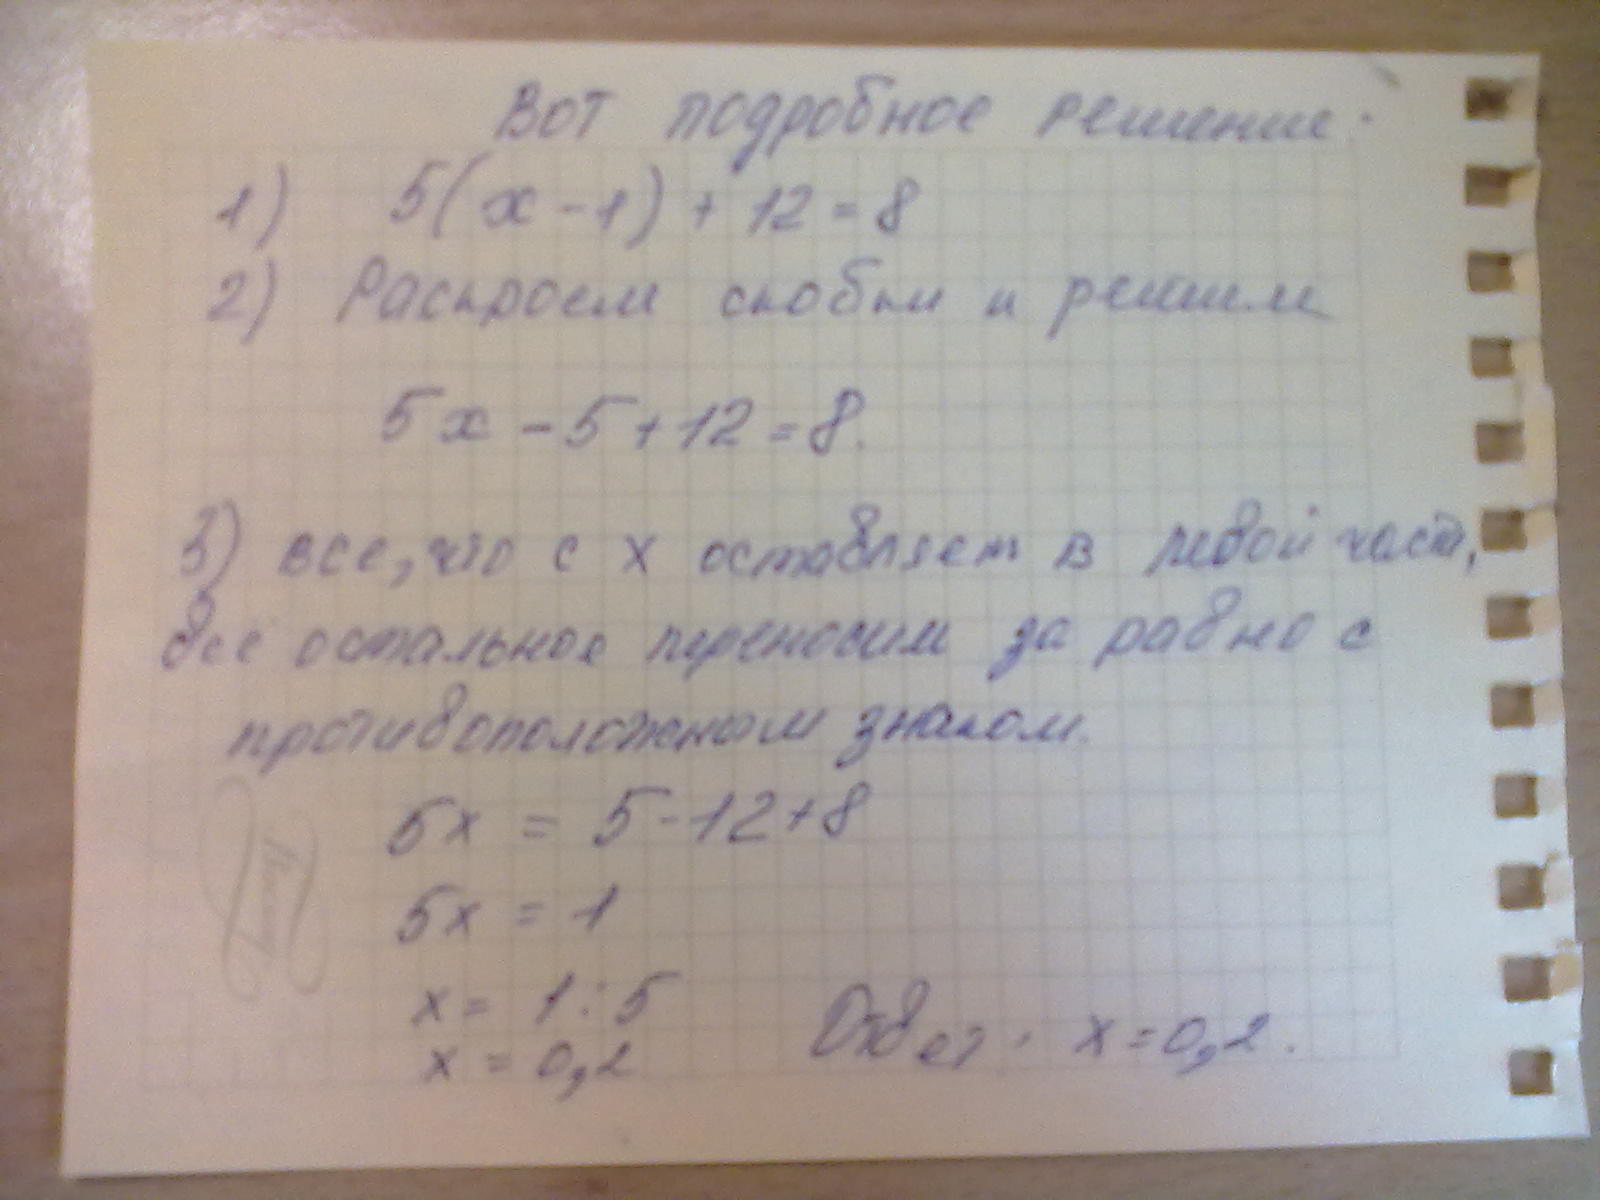 Вот подробное решение.
1) 5(x-1)+12=8
2) Раскроем скобки и решим
5x-5+12=8.
3) все, что с х оставляем в левой част,
все остальное переносим за равно с
противоположном знаком.
5x = 5-12+8
5x = 1
x = 1:5
x = 0,2 Ответ: x=0,2.